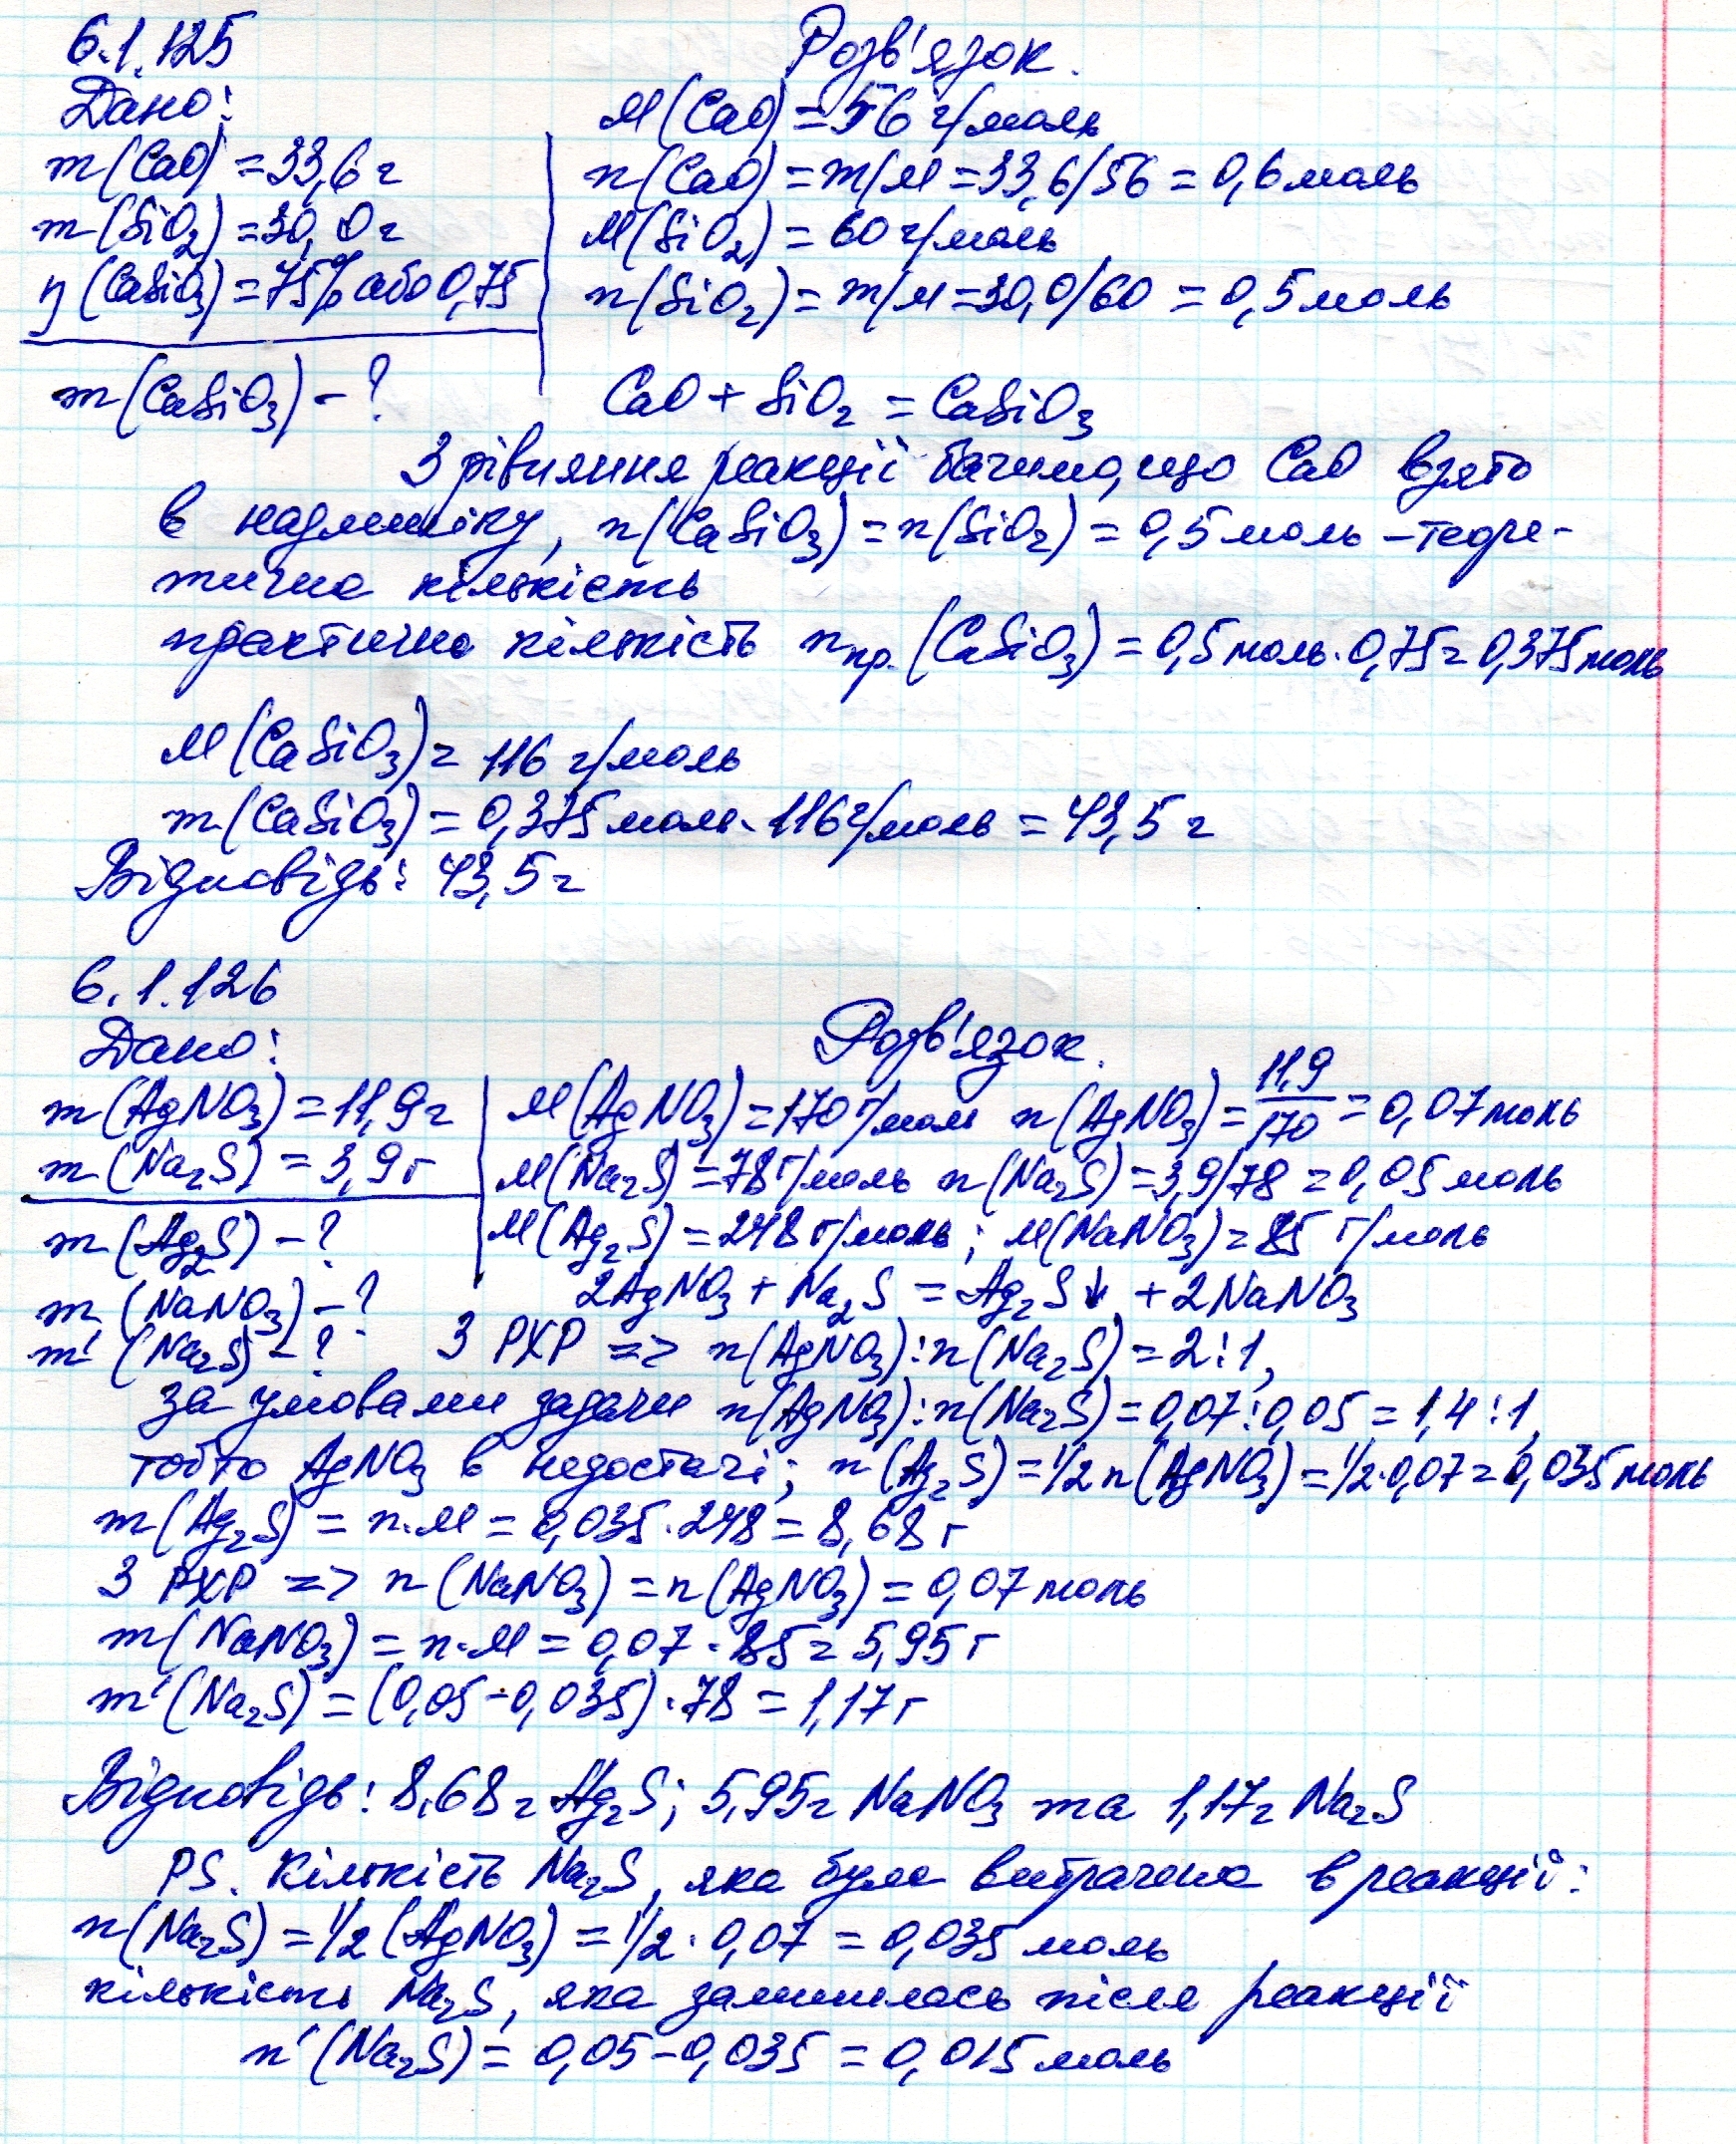 6.1.125
Дано:
m(CaO) = 33,6 г
m(SiO₂) = 30,0 г
η(CaSiO₃) = 75% або 0,75
m(CaSiO₃) - ?
Розв'язок.
M(CaO) = 56 г/моль
n(CaO) = m/M = 33,6/56 = 0,6 моль
M(SiO₂) = 60 г/моль
n(SiO₂) = m/M = 30,0/60 = 0,5 моль
CaO + SiO₂ = CaSiO₃
З рівняння реакції бачимо, що CaO взято
в надлишку, n(CaSiO₃) = n(SiO₂) = 0,5 моль – теоре-
тична кількість
практична кількість nпр.(CaSiO₃) = 0,5 моль · 0,75 = 0,375 моль
M(CaSiO₃) = 116 г/моль
m(CaSiO₃) = 0,375 моль · 116 г/моль = 43,5 г
Відповідь: 43,5 г
6.1.126
Дано:
m(AgNO₃) = 11,9 г
m(Na₂S) = 3,9 г
m(Ag₂S) - ?
m(NaNO₃) - ?
m'(Na₂S) - ?
Розв'язок.
M(AgNO₃) = 170 г/моль n(AgNO₃) = 11,9/170 = 0,07 моль
M(Na₂S) = 78 г/моль n(Na₂S) = 3,9/78 = 0,05 моль
M(Ag₂S) = 248 г/моль; M(NaNO₃) = 85 г/моль
2AgNO₃ + Na₂S = Ag₂S↓ + 2NaNO₃
З РХР => n(AgNO₃) : n(Na₂S) = 2 : 1,
за умовами задачи n(AgNO₃) : n(Na₂S) = 0,07 : 0,05 = 1,4 : 1,
тобто AgNO₃ в недостачі; n(Ag₂S) = 1/2 n(AgNO₃) = 1/2 · 0,07 = 0,035 моль
m(Ag₂S) = n·M = 0,035 · 248 = 8,68 г
З РХР => n(NaNO₃) = n(AgNO₃) = 0,07 моль
m(NaNO₃) = n·M = 0,07 · 85 = 5,95 г
m'(Na₂S) = (0,05 - 0,035) · 78 = 1,17 г
Відповідь: 8,68 г Ag₂S; 5,95 г NaNO₃ та 1,17 г Na₂S
PS. Кількість Na₂S, яка була витрачена в реакції:
n(Na₂S) = 1/2 (AgNO₃) = 1/2 · 0,07 = 0,035 моль
кількість Na₂S, яка залишилась після реакції
n'(Na₂S) = 0,05 - 0,035 = 0,015 моль